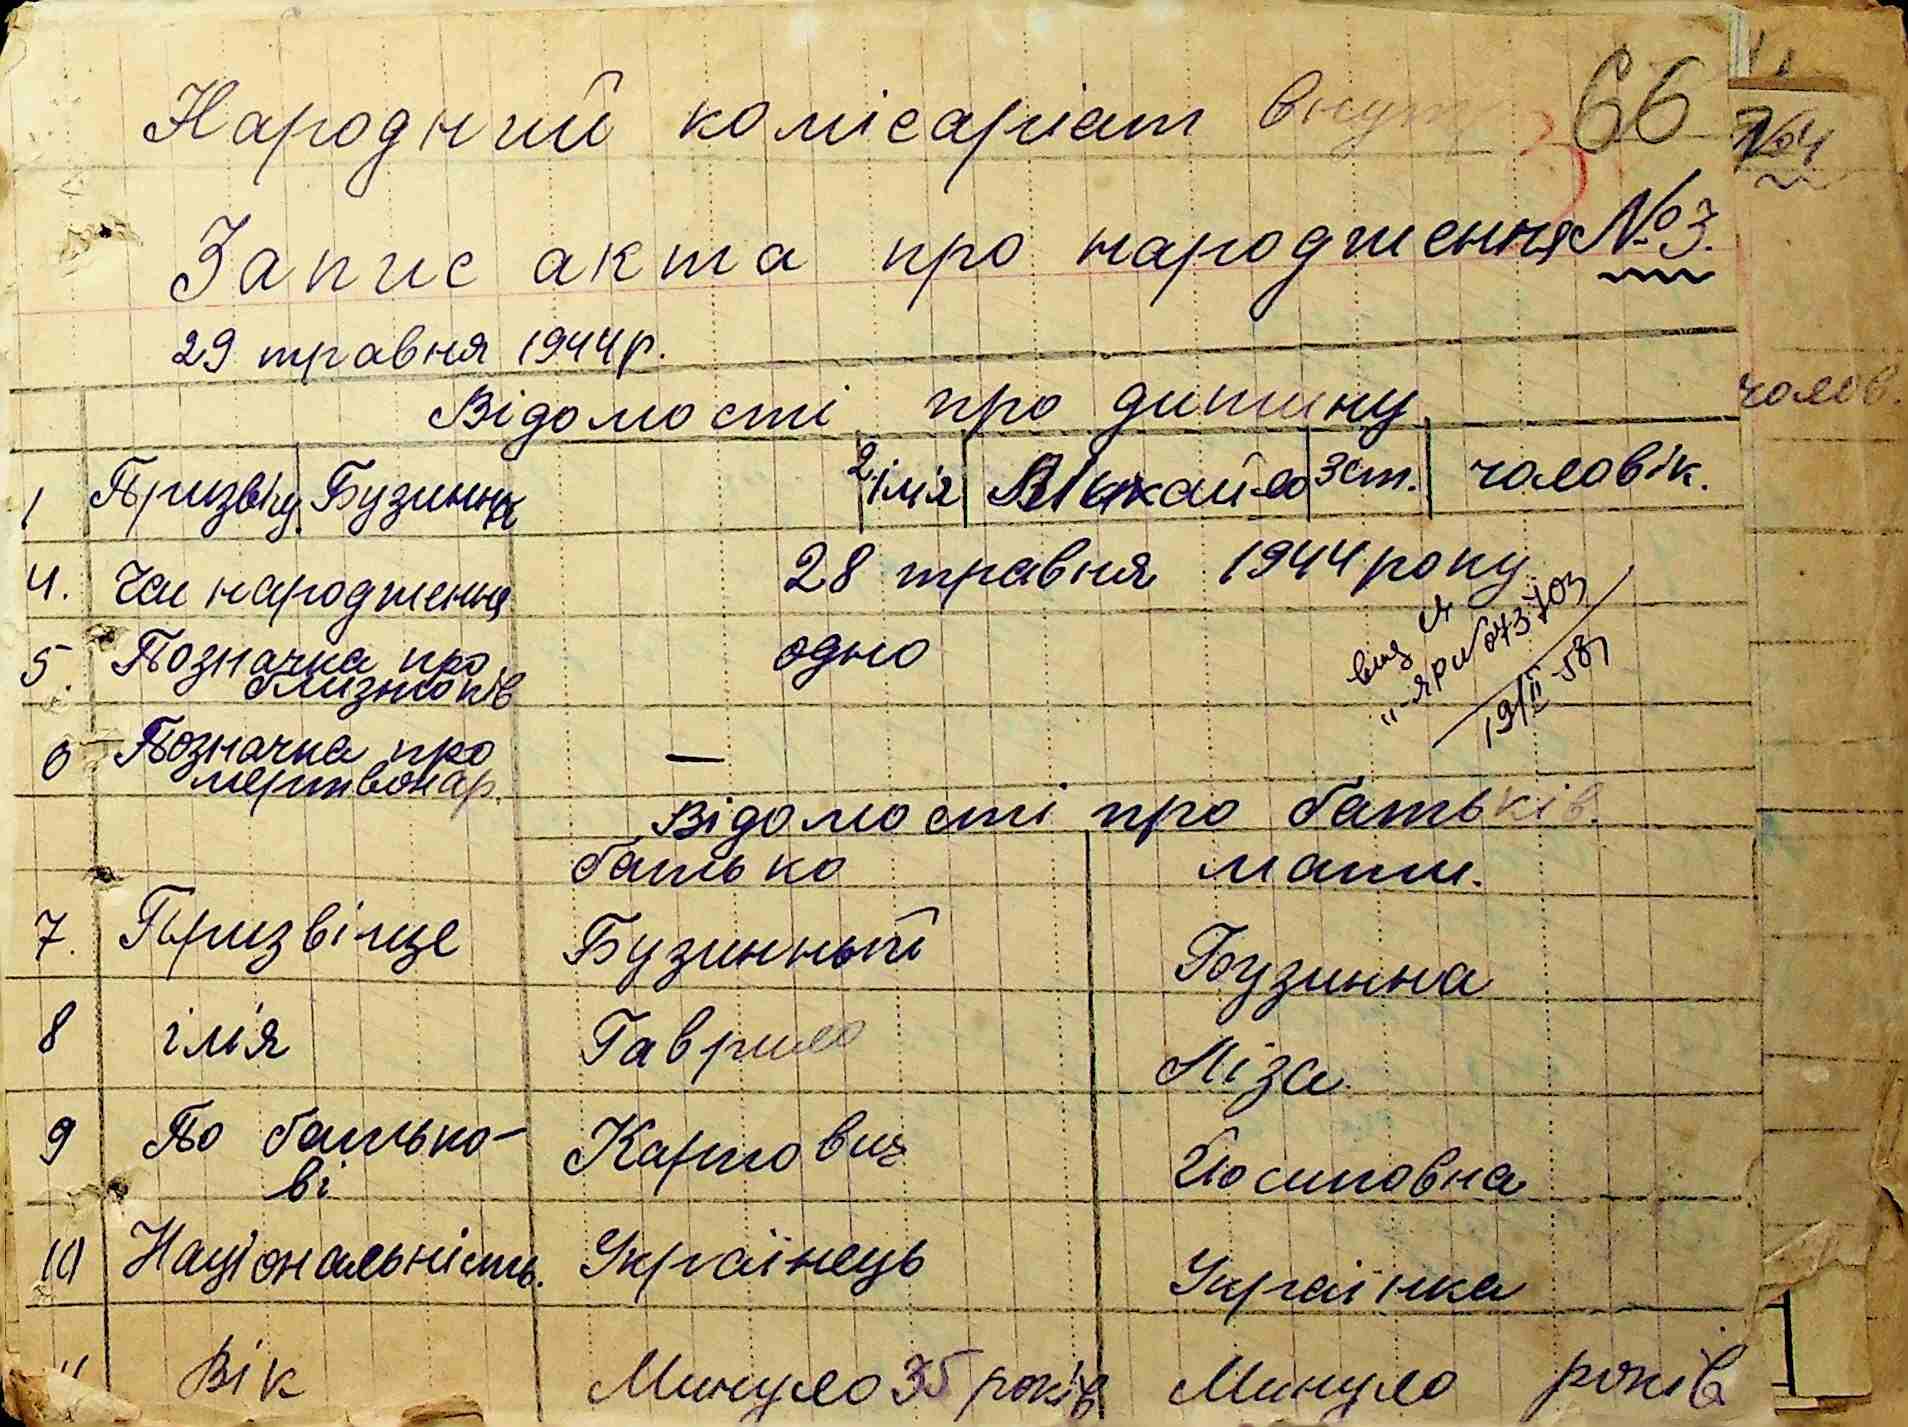 66
Народний комісаріат внут
№4
Запис акта про народження №3.
29 травня 1944 р.
Відомості про дитину
чолов.
1 Призвіщ. 2 імія Михайло 3 ст. чоловік.
4. Час народження 28 травня 1944 року
5. Позначка про близнюків одно
19/II-58
6 Позначка про мертвонар. —
Відомості про батьків.
батько мати.
7. Призвіще Бузинный Бузинна
8 імія Гаврило Ліза
9 По батькові Карпович Йосиповна
10 Національність. Українець Українка
11 Вік Минуло 35 років Минуло років